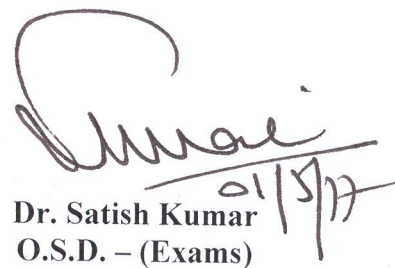 01/5/17
Dr. Satish Kumar
O.S.D. – (Exams)